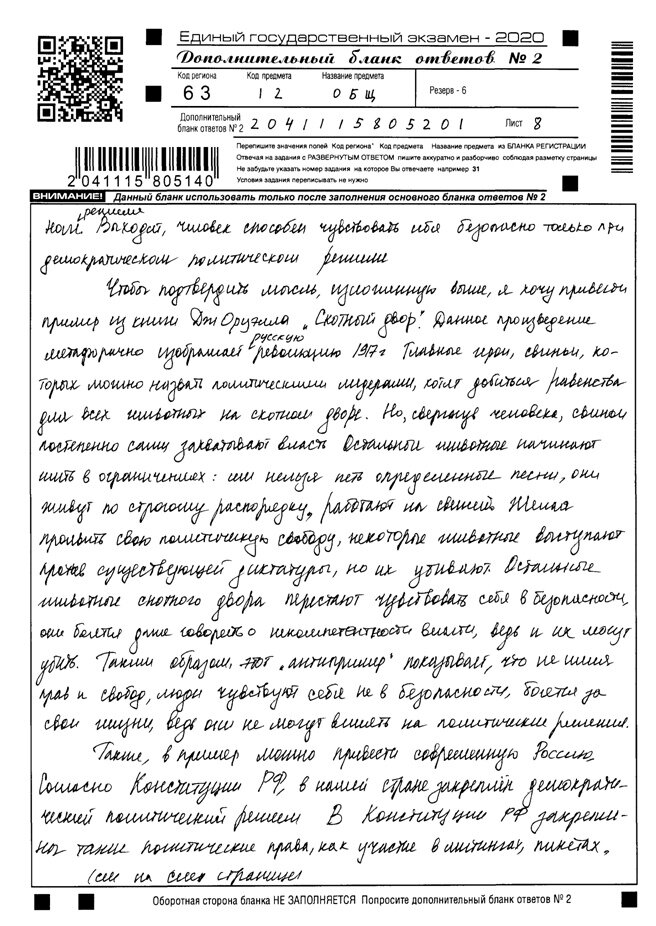 Единый государственный экзамен - 2020
Дополнительный бланк ответов № 2
Код региона Код предмета Название предмета
63 12 ОБЩ Резерв - 6
Дополнительный
бланк ответов № 2 2041115805201 Лист 8
Перепишите значения полей "Код региона" "Код предмета" "Название предмета" из БЛАНКА РЕГИСТРАЦИИ
Отвечая на задания с РАЗВЕРНУТЫМ ОТВЕТОМ пишите аккуратно и разборчиво соблюдая разметку страницы
Не забудьте указать номер задания на которое Вы отвечаете например 31
Условия задания переписывать не нужно
2 041115 805140
ВНИМАНИЕ! Данный бланк использовать только после заполнения основного бланка ответов № 2
режиме
ном Выходит, человек способен чувствовать себя безопасно только при
демократическом политическом режиме
Чтобы подтвердить мысль, изложенную выше, я хочу привести
пример из книги Дж Оруэлла „Скотный двор". Данное произведение
русскую
метафорично изображает революцию 1917г Главные герои, свиньи, ко-
торых можно назвать политическими лидерами, хотят добиться равенства
для всех животных на скотном дворе. Но, свергнув человека, свиньи
постепенно сами захватывают власть Остальные животные начинают
жить в ограничениях: им нельзя петь определенные песни, они
живут по строгому распорядку, работают на свиней Желая
проявить свою политическую свободу, некоторые животные выступают
против существующей диктатуры, но их убивают. Остальные
животные скотного двора перестают чувствовать себя в безопасности,
они боятся даже говорить о некомпетентности власти, ведь и их могут
убить. Таким образом, этот „антипример" показывает, что не имея
прав и свобод, люди чувствуют себя не в безопасности, боятся за
свои жизни, ведь они не могут влиять на политические решения.
Также, в пример можно привести современную Россию.
Согласно Конституции РФ, в нашей стране закреплён демократи-
ческий политический режим В Конституции РФ закрепле-
ны такие политические права, как участие в митингах, пикетах,
(см на след странице)
Оборотная сторона бланка НЕ ЗАПОЛНЯЕТСЯ Попросите дополнительный бланк ответов № 2